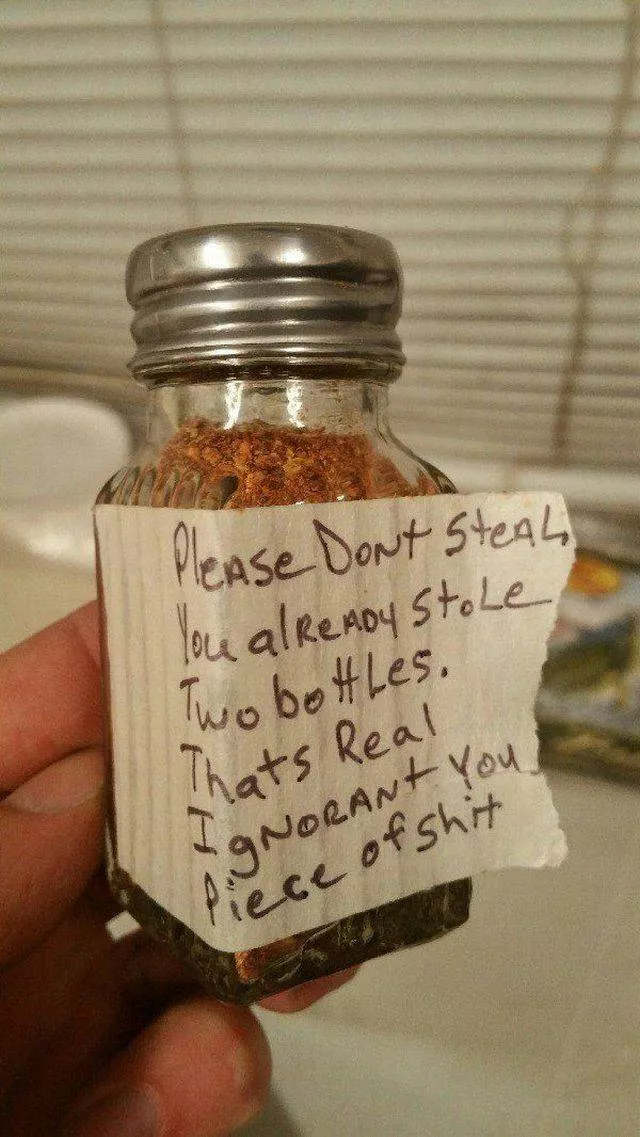 Please Dont Steal
You already stole
Two bottles.
Thats Real
Ignorant you
Piece of shit